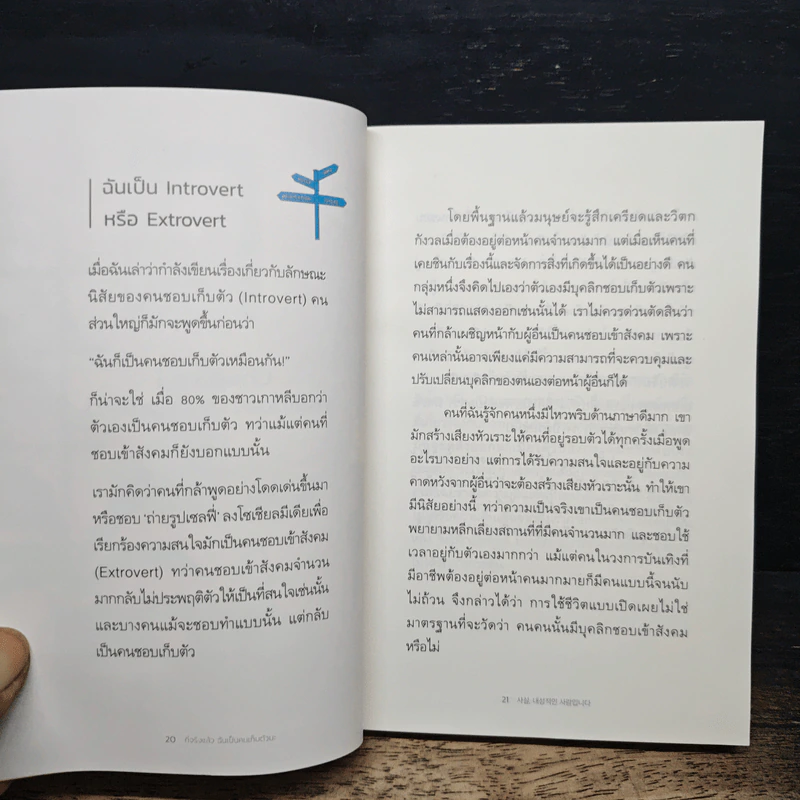 ฉันเป็น Introvert
หรือ Extrovert
เมื่อฉันเล่าว่ากำลังเขียนเรื่องเกี่ยวกับลักษณะ
นิสัยของคนชอบเก็บตัว (Introvert) คน
ส่วนใหญ่ก็มักจะพูดขึ้นก่อนว่า
“ฉันก็เป็นคนชอบเก็บตัวเหมือนกัน!”
ก็น่าจะใช่ เมื่อ 80% ของชาวเกาหลีบอกว่า
ตัวเองเป็นคนชอบเก็บตัว ทว่าแม้แต่คนที่
ชอบเข้าสังคมก็ยังบอกแบบนั้น
เรามักคิดว่าคนที่กล้าพูดอย่างโดดเด่นขึ้นมา
หรือชอบ ‘ถ่ายรูปเซลฟี่’ ลงโซเชียลมีเดียเพื่อ
เรียกร้องความสนใจมักเป็นคนชอบเข้าสังคม
(Extrovert) ทว่าคนชอบเข้าสังคมจำนวน
มากกลับไม่ประพฤติตัวให้เป็นที่สนใจเช่นนั้น
และบางคนแม้จะชอบทำแบบนั้น แต่กลับ
เป็นคนชอบเก็บตัว
20 ที่จริงแล้ว ฉันเป็นคนเก็บตัวนะ
โดยพื้นฐานแล้วมนุษย์จะรู้สึกเครียดและวิตก
กังวลเมื่อต้องอยู่ต่อหน้าคนจำนวนมาก แต่เมื่อเห็นคนที่
เคยชินกับเรื่องนี้และจัดการสิ่งที่เกิดขึ้นได้เป็นอย่างดี คน
กลุ่มหนึ่งจึงคิดไปเองว่าตัวเองมีบุคลิกชอบเก็บตัวเพราะ
ไม่สามารถแสดงออกเช่นนั้นได้ เราไม่ควรด่วนตัดสินว่า
คนที่กล้าเผชิญหน้ากับผู้อื่นเป็นคนชอบเข้าสังคม เพราะ
คนเหล่านั้นอาจเพียงแค่มีความสามารถที่จะควบคุมและ
ปรับเปลี่ยนบุคลิกของตนเองต่อหน้าผู้อื่นก็ได้
คนที่ฉันรู้จักคนหนึ่งมีไหวพริบด้านภาษาดีมาก เขา
มักสร้างเสียงหัวเราะให้คนที่อยู่รอบตัวได้ทุกครั้งเมื่อพูด
อะไรบางอย่าง แต่การได้รับความสนใจและอยู่กับความ
คาดหวังจากผู้อื่นว่าจะต้องสร้างเสียงหัวเราะนั้น ทำให้เขา
มีนิสัยอย่างนี้ ทว่าความเป็นจริงเขาเป็นคนชอบเก็บตัว
พยายามหลีกเลี่ยงสถานที่ที่มีคนจำนวนมาก และชอบใช้
เวลาอยู่กับตัวเองมากกว่า แม้แต่คนในวงการบันเทิงที่
มีอาชีพต้องอยู่ต่อหน้าคนมากมายก็มีคนแบบนี้จนนับ
ไม่ถ้วน จึงกล่าวได้ว่า การใช้ชีวิตแบบเปิดเผยไม่ใช่
มาตรฐานที่จะวัดว่า คนคนนั้นมีบุคลิกชอบเข้าสังคม
หรือไม่
21 사실, 내성적인 사람입니다